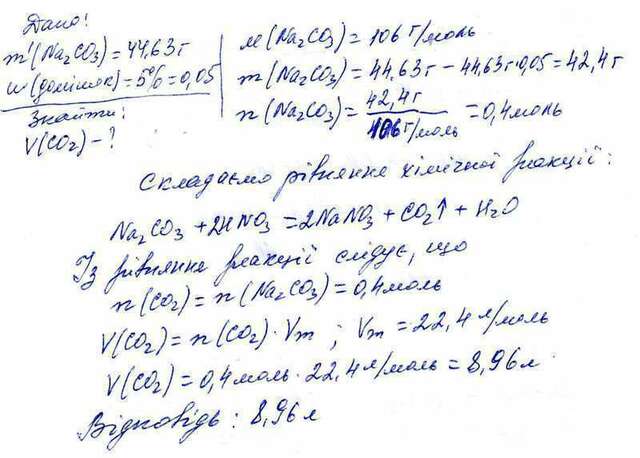 Дано:
m'(Na₂CO₃) = 44,63г
w(домішок) = 5% = 0,05
Знайти:
V(CO₂) - ?
M(Na₂CO₃) = 106 г/моль
m(Na₂CO₃) = 44,63г - 44,63г·0,05 = 42,4г
n(Na₂CO₃) = 42,4г / 106 г/моль = 0,4 моль
Складаємо рівняння хімічної реакції:
Na₂CO₃ + 2HNO₃ = 2NaNO₃ + CO₂↑ + H₂O
Із рівняння реакції слідує, що
n(CO₂) = n(Na₂CO₃) = 0,4 моль
V(CO₂) = n(CO₂)·Vm ; Vm = 22,4 л/моль
V(CO₂) = 0,4 моль · 22,4 л/моль = 8,96 л.
Відповідь: 8,96 л